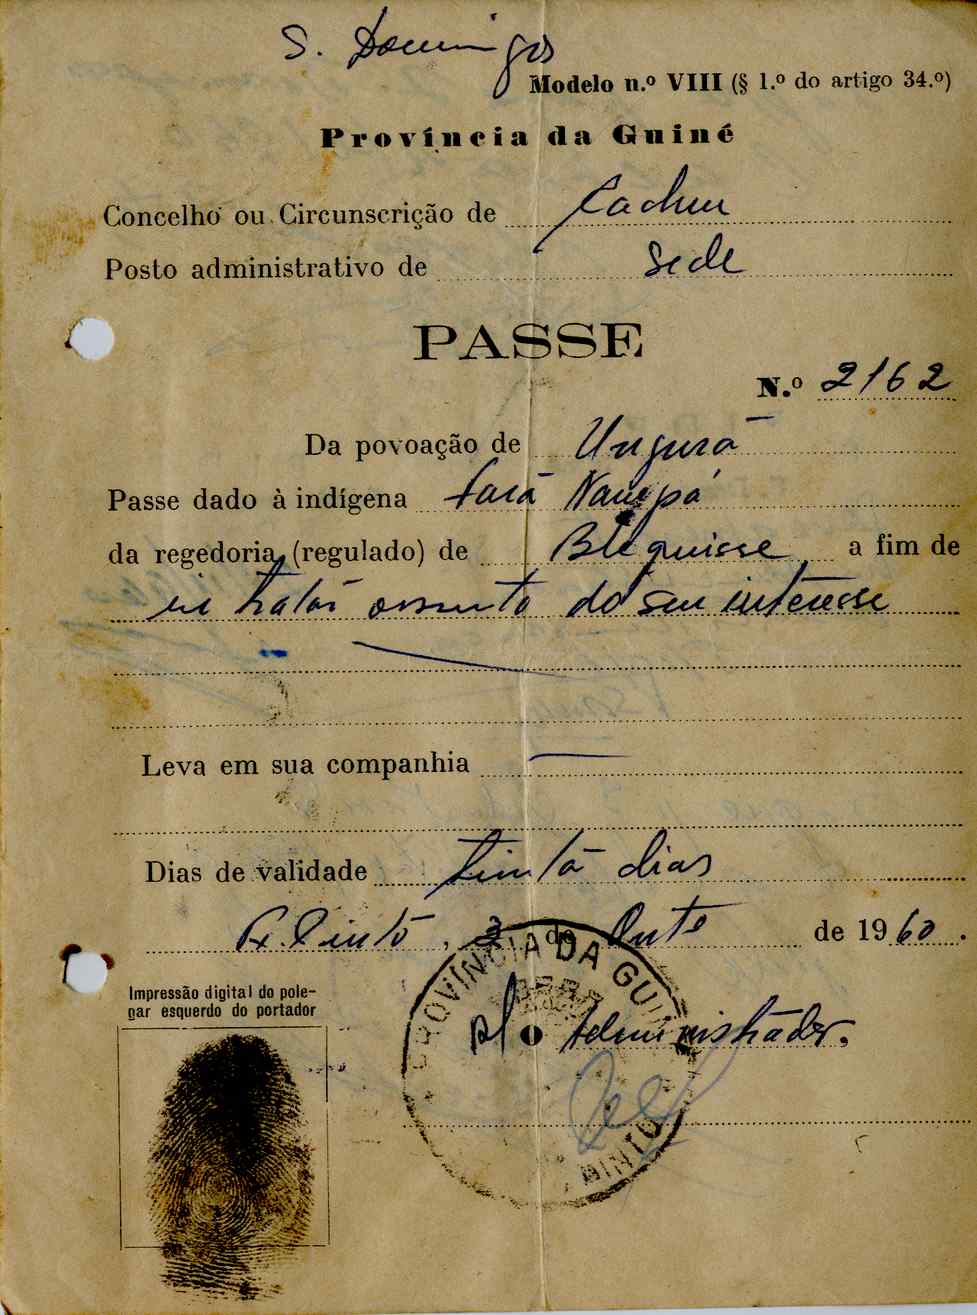 S. Domingos
Modelo n.º VIII (§ 1.º do artigo 34.º)
Província da Guiné
Concelho ou Circunscrição de Cacheu
Posto administrativo de Sede
PASSE
N.º 2162
Da povoação de
Passe dado à indígena
da regedoria (regulado) de a fim de
tratar assunto do seu interesse
Leva em sua companhia
Dias de validade trinta dias
de de 1960.
Impressão digital do pole-
gar esquerdo do portador
PROVÍNCIA DA GUINÉ
p/ o Administrador.